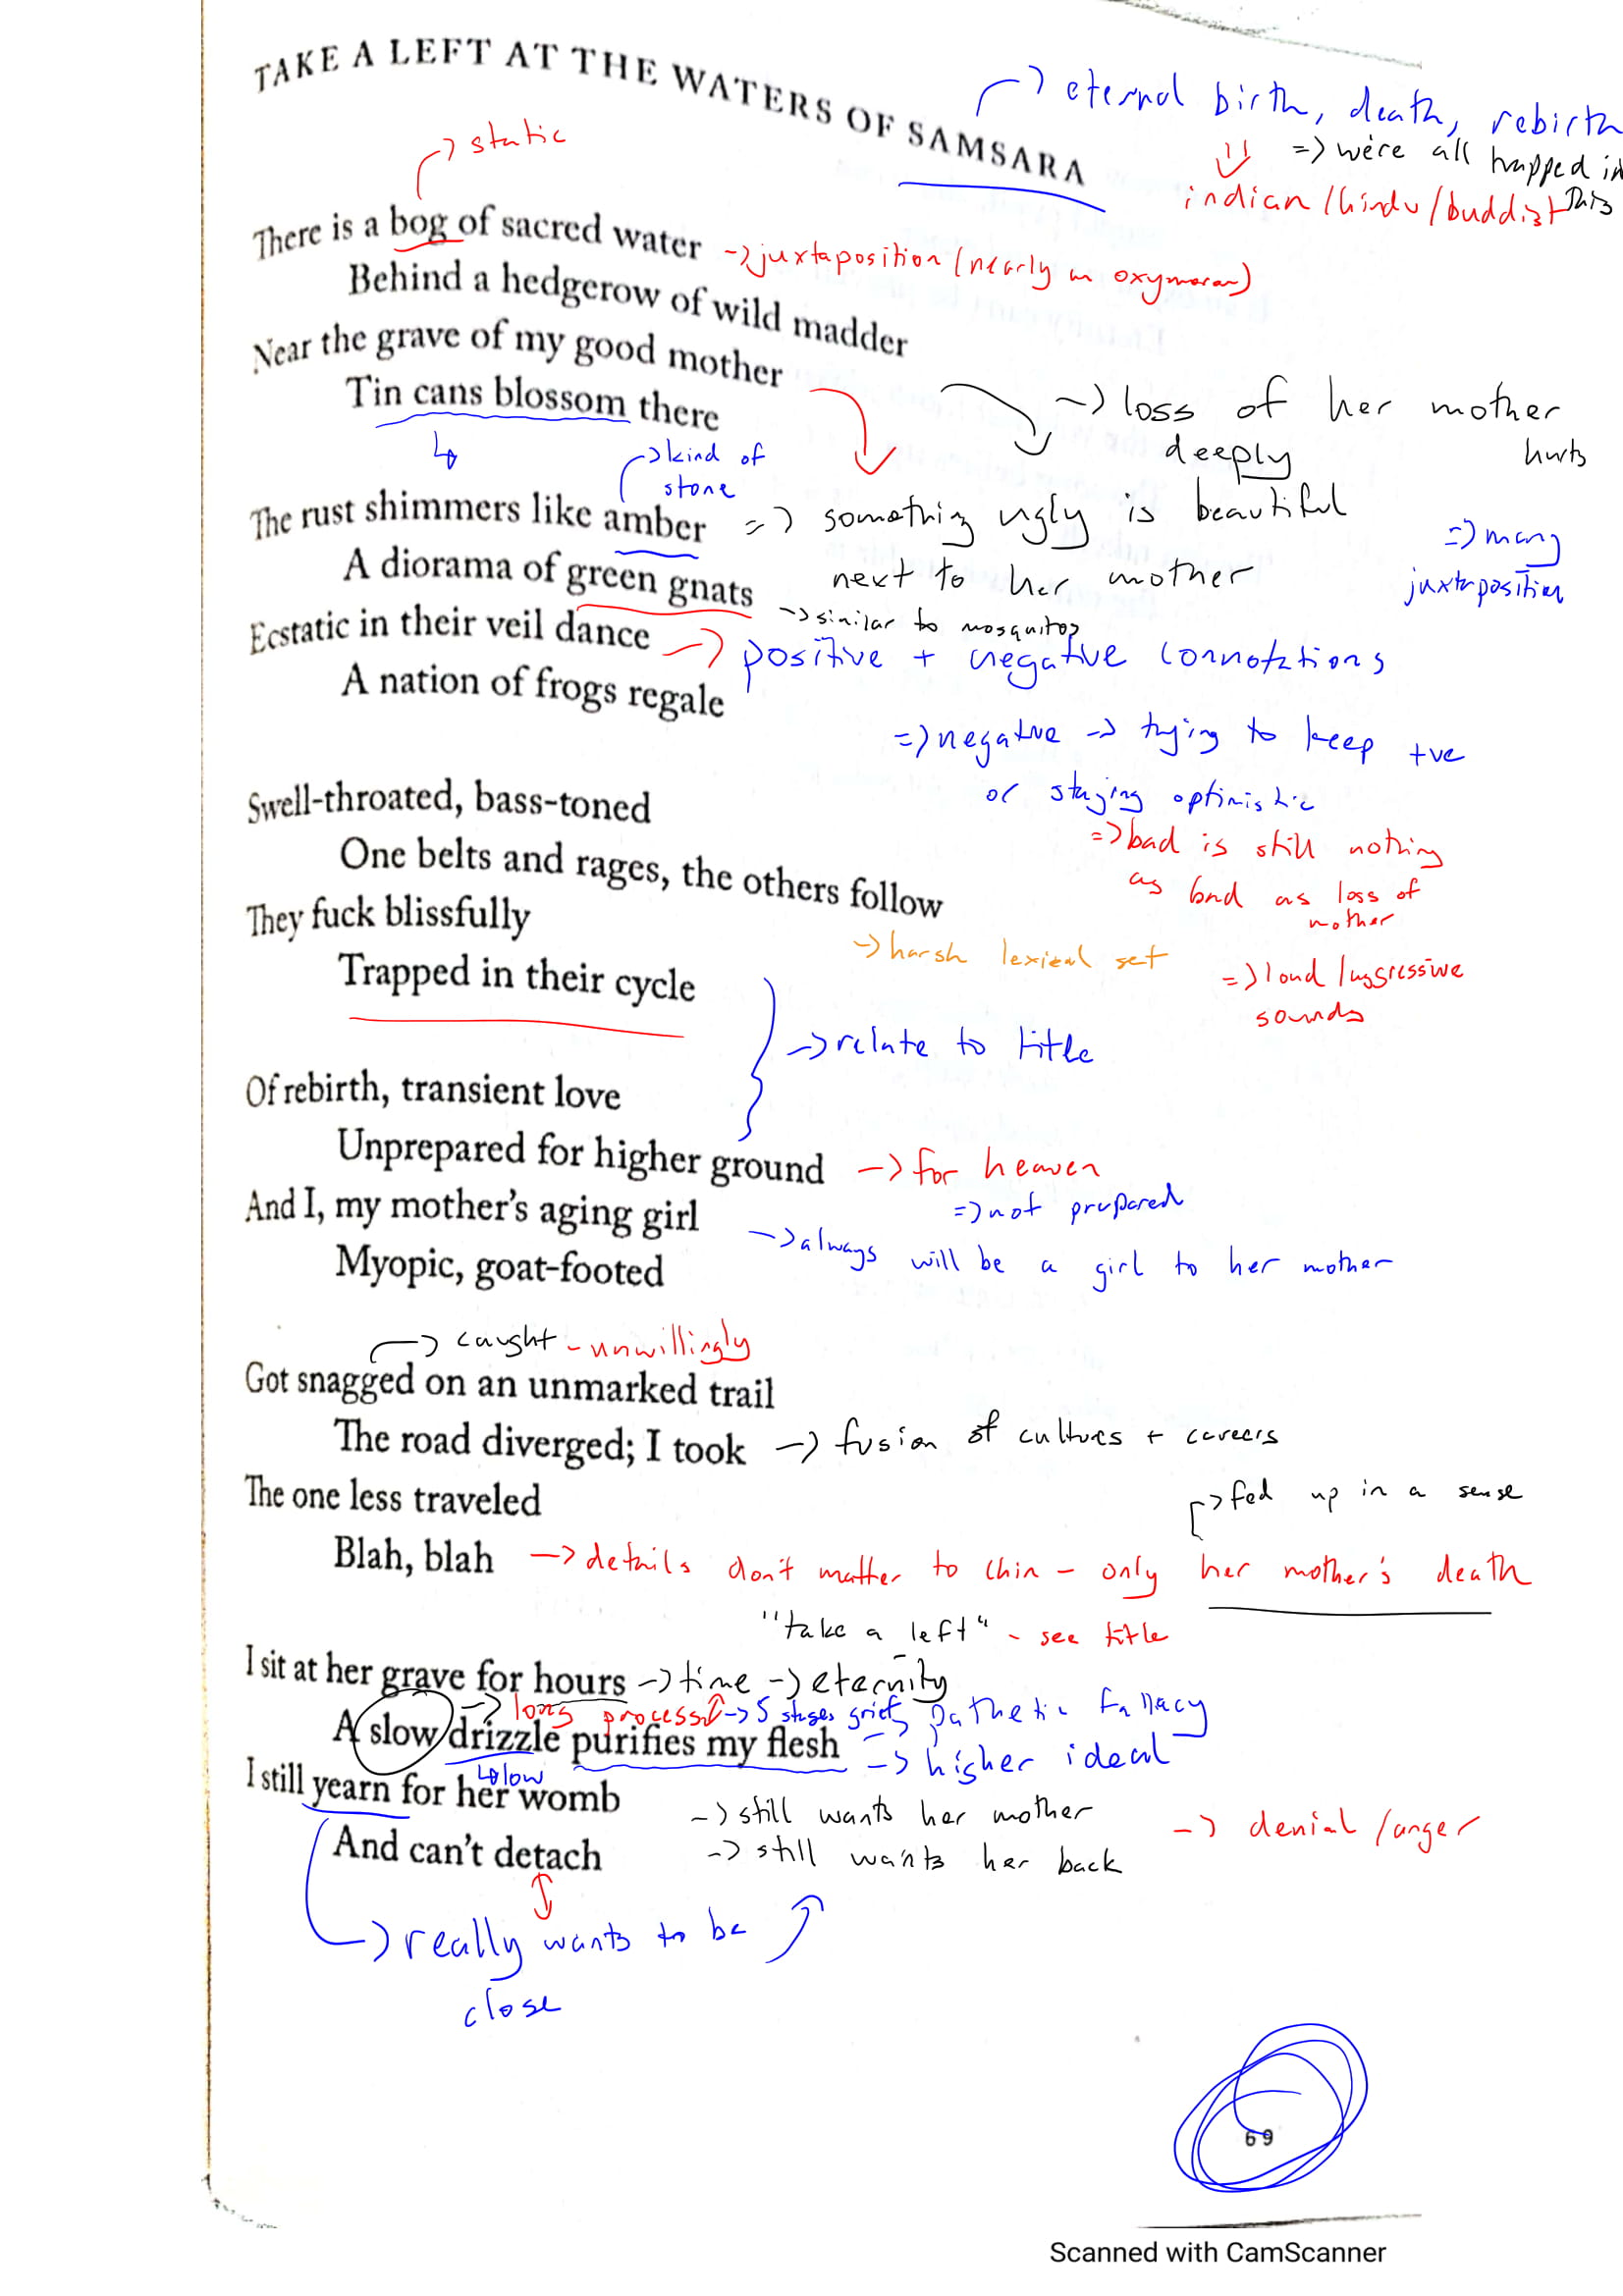 TAKE A LEFT AT THE WATERS OF SAMSARA
-> eternal birth, death, rebirth
=> we're all trapped in this
indian/hindu/buddist
-> static
There is a bog of sacred water
-> juxtaposition (nearly an oxymoron)
Behind a hedgerow of wild madder
Near the grave of my good mother
Tin cans blossom there
-> loss of her mother
deeply hurts
-> kind of
stone
The rust shimmers like amber
=> something ugly is beautiful
next to her mother
=> many
juxtaposition
A diorama of green gnats
-> similar to mosquitos
Ecstatic in their veil dance
-> positive + negative connotations
A nation of frogs regale
=> negative -> trying to keep +ve
or staying optimistic
Swell-throated, bass-toned
=> bad is still nothing
as bad as loss of
mother
One belts and rages, the others follow
They fuck blissfully
-> harsh lexical set
=> loud/aggressive
sounds
Trapped in their cycle
-> relate to title
Of rebirth, transient love
Unprepared for higher ground
-> for heaven
=> not prepared
And I, my mother's aging girl
-> always will be a girl to her mother
Myopic, goat-footed
-> caught - unwillingly
Got snagged on an unmarked trail
The road diverged; I took
-> fusion of cultures + careers
The one less traveled
-> fed up in a sense
Blah, blah
-> details don't matter to Chin - only her mother's death
"take a left" - see title
I sit at her grave for hours
-> time -> eternity
-> long process -> 5 stages grief
-> pathetic fallacy
A slow drizzle purifies my flesh
-> higher ideal
low
I still yearn for her womb
-> still wants her mother
-> denial/anger
And can't detach
-> still wants her back
-> really wants to be
close
69
Scanned with CamScanner